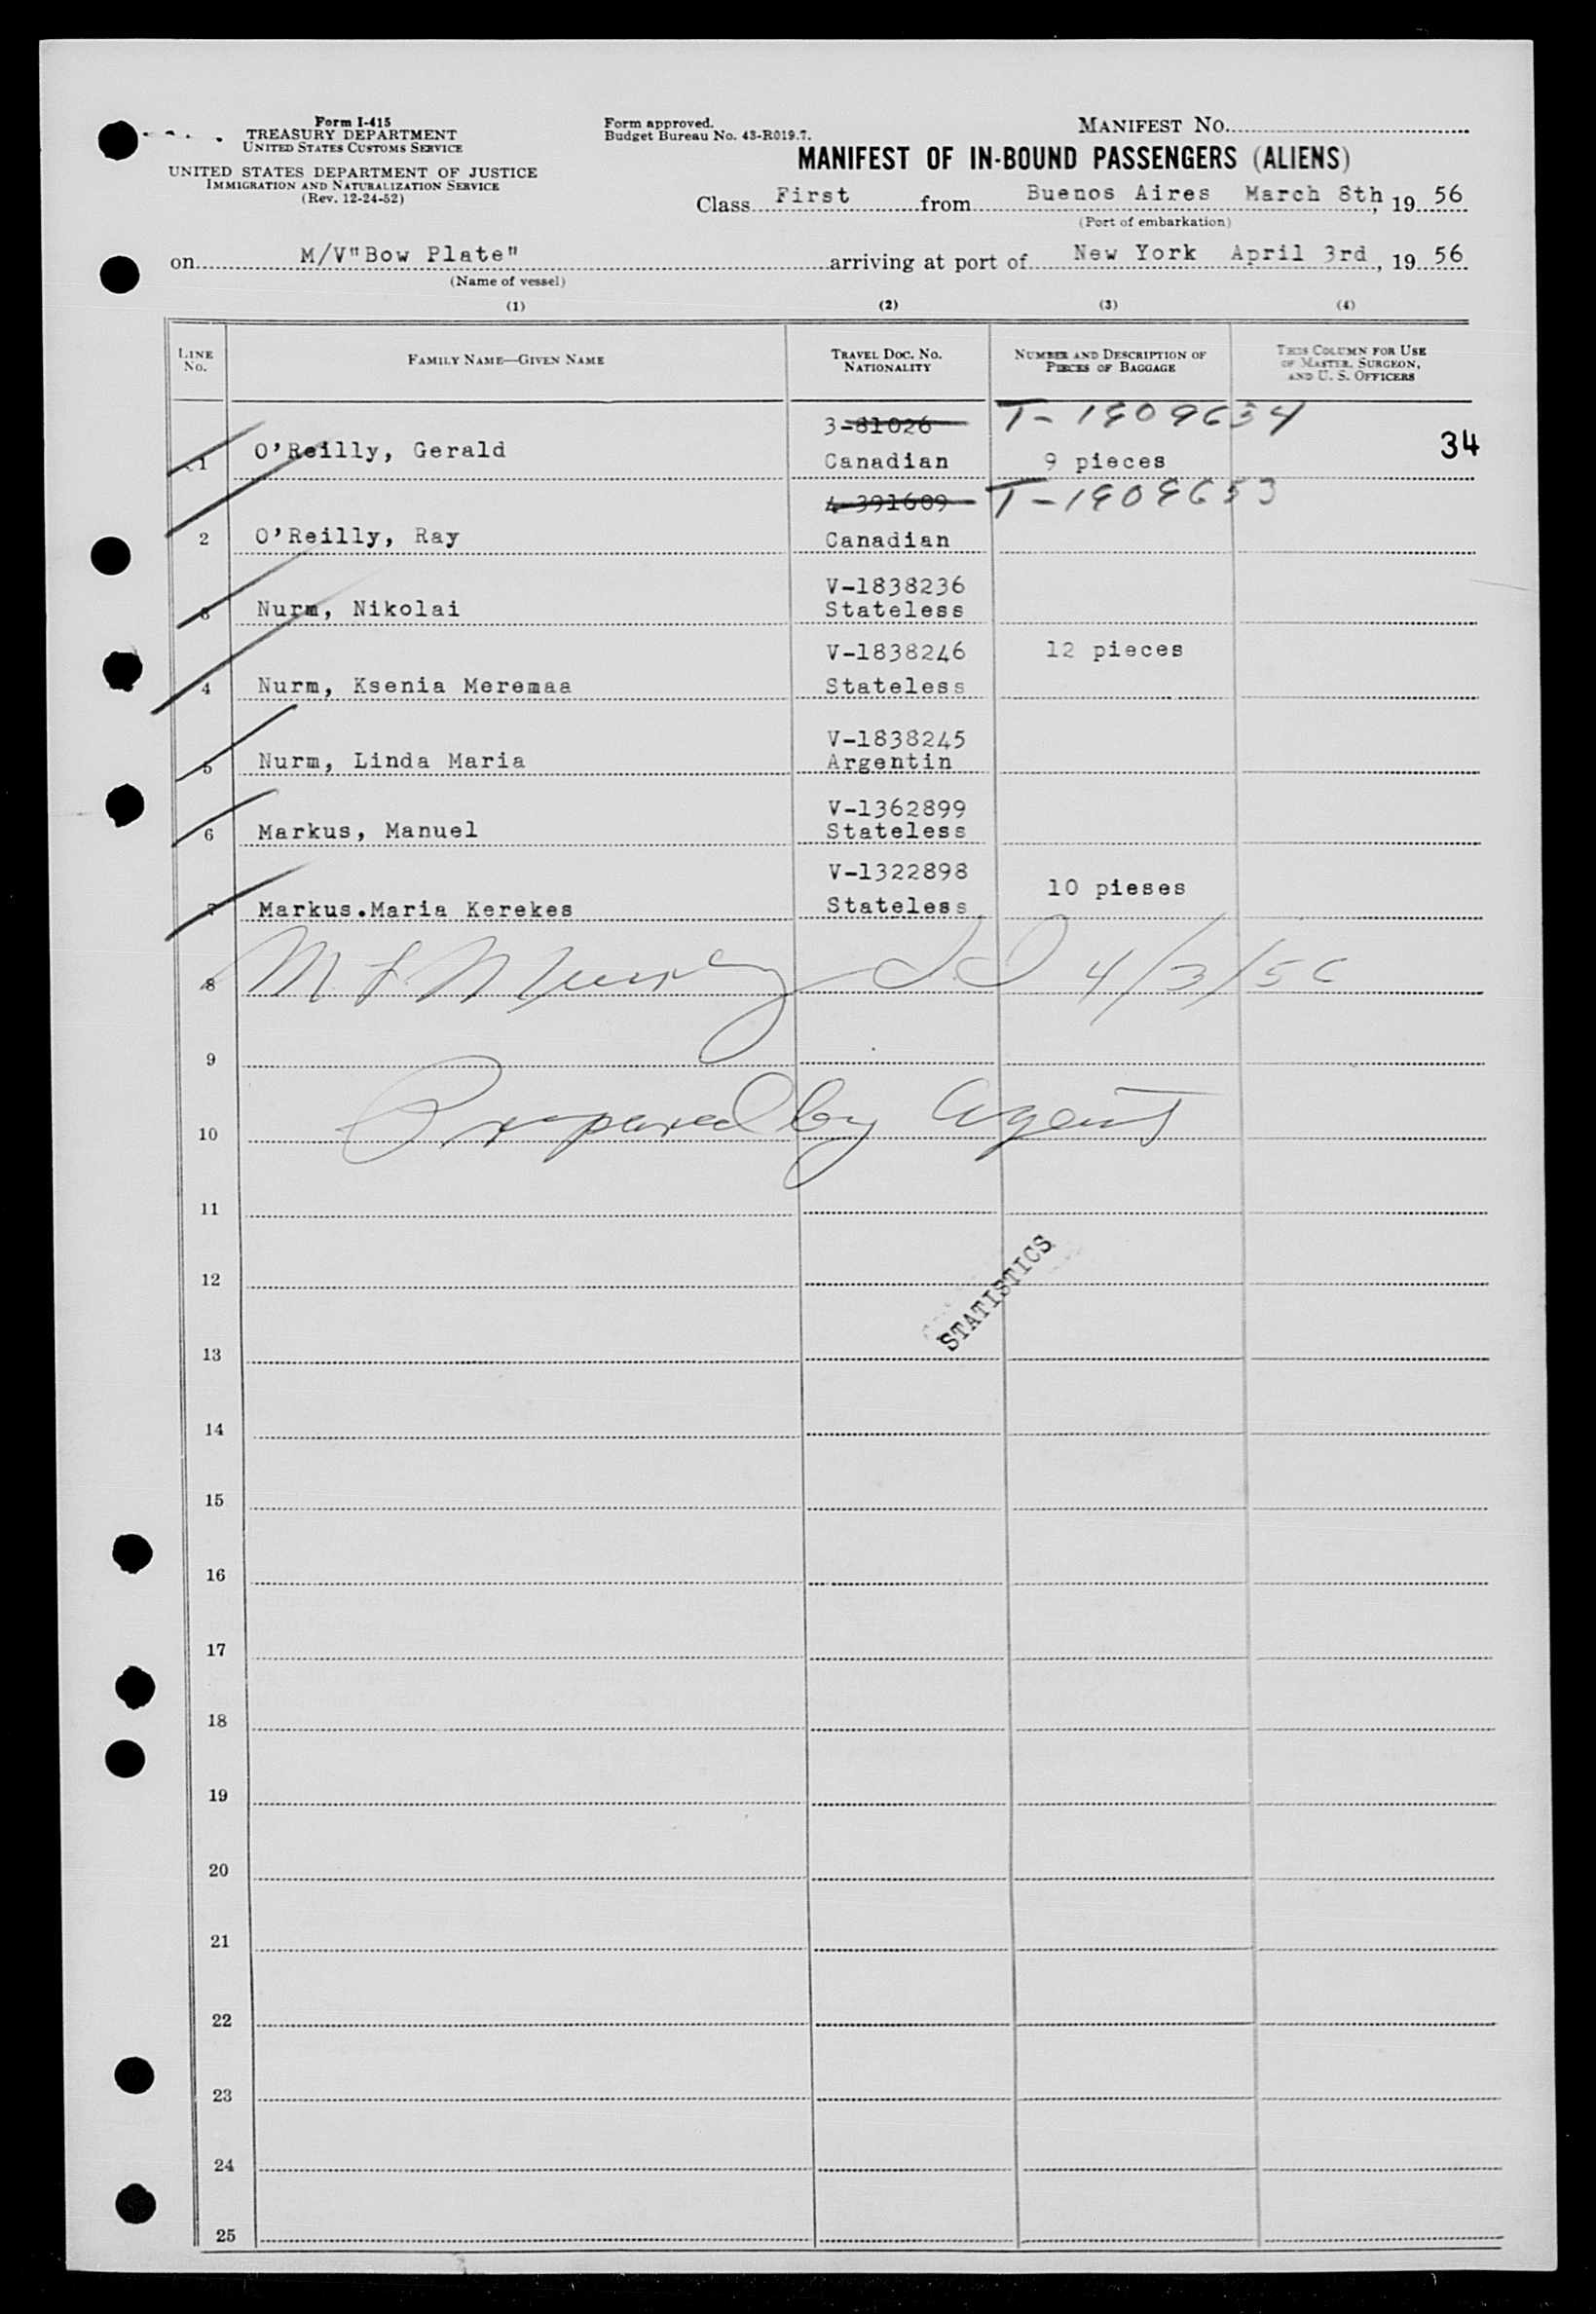 Form I-415
TREASURY DEPARTMENT
UNITED STATES CUSTOMS SERVICE
UNITED STATES DEPARTMENT OF JUSTICE
IMMIGRATION AND NATURALIZATION SERVICE
(Rev. 12-24-52)
Form approved.
Budget Bureau No. 43-R019.7.
MANIFEST NO.
MANIFEST OF IN-BOUND PASSENGERS (ALIENS)
Class First from Buenos Aires March 8th, 19 56
(Port of embarkation)
on M/V"Bow Plate" arriving at port of New York April 3rd, 19 56
(Name of vessel)
(1) (2) (3) (4)
LINE NO. FAMILY NAME—GIVEN NAME TRAVEL DOC. NO. NATIONALITY NUMBER AND DESCRIPTION OF PIECES OF BAGGAGE THIS COLUMN FOR USE OF MASTER, SURGEON, AND U. S. OFFICERS
3-81026 T-1909634
1 O'Reilly, Gerald Canadian 9 pieces 34
4-391609 T-1909633
2 O'Reilly, Ray Canadian
V-1838236
3 Nurm, Nikolai Stateless
V-1838246 12 pieces
4 Nurm, Ksenia Meremaa Stateless
V-1838245
5 Nurm, Linda Maria Argentin
V-1362899
6 Markus, Manuel Stateless
V-1322898 10 pieses
7 Markus.Maria Kerekes Stateless
8 4/3/56
9
Prepared by Agent
10
11
STATISTICS
12
13
14
15
16
17
18
19
20
21
22
23
24
25